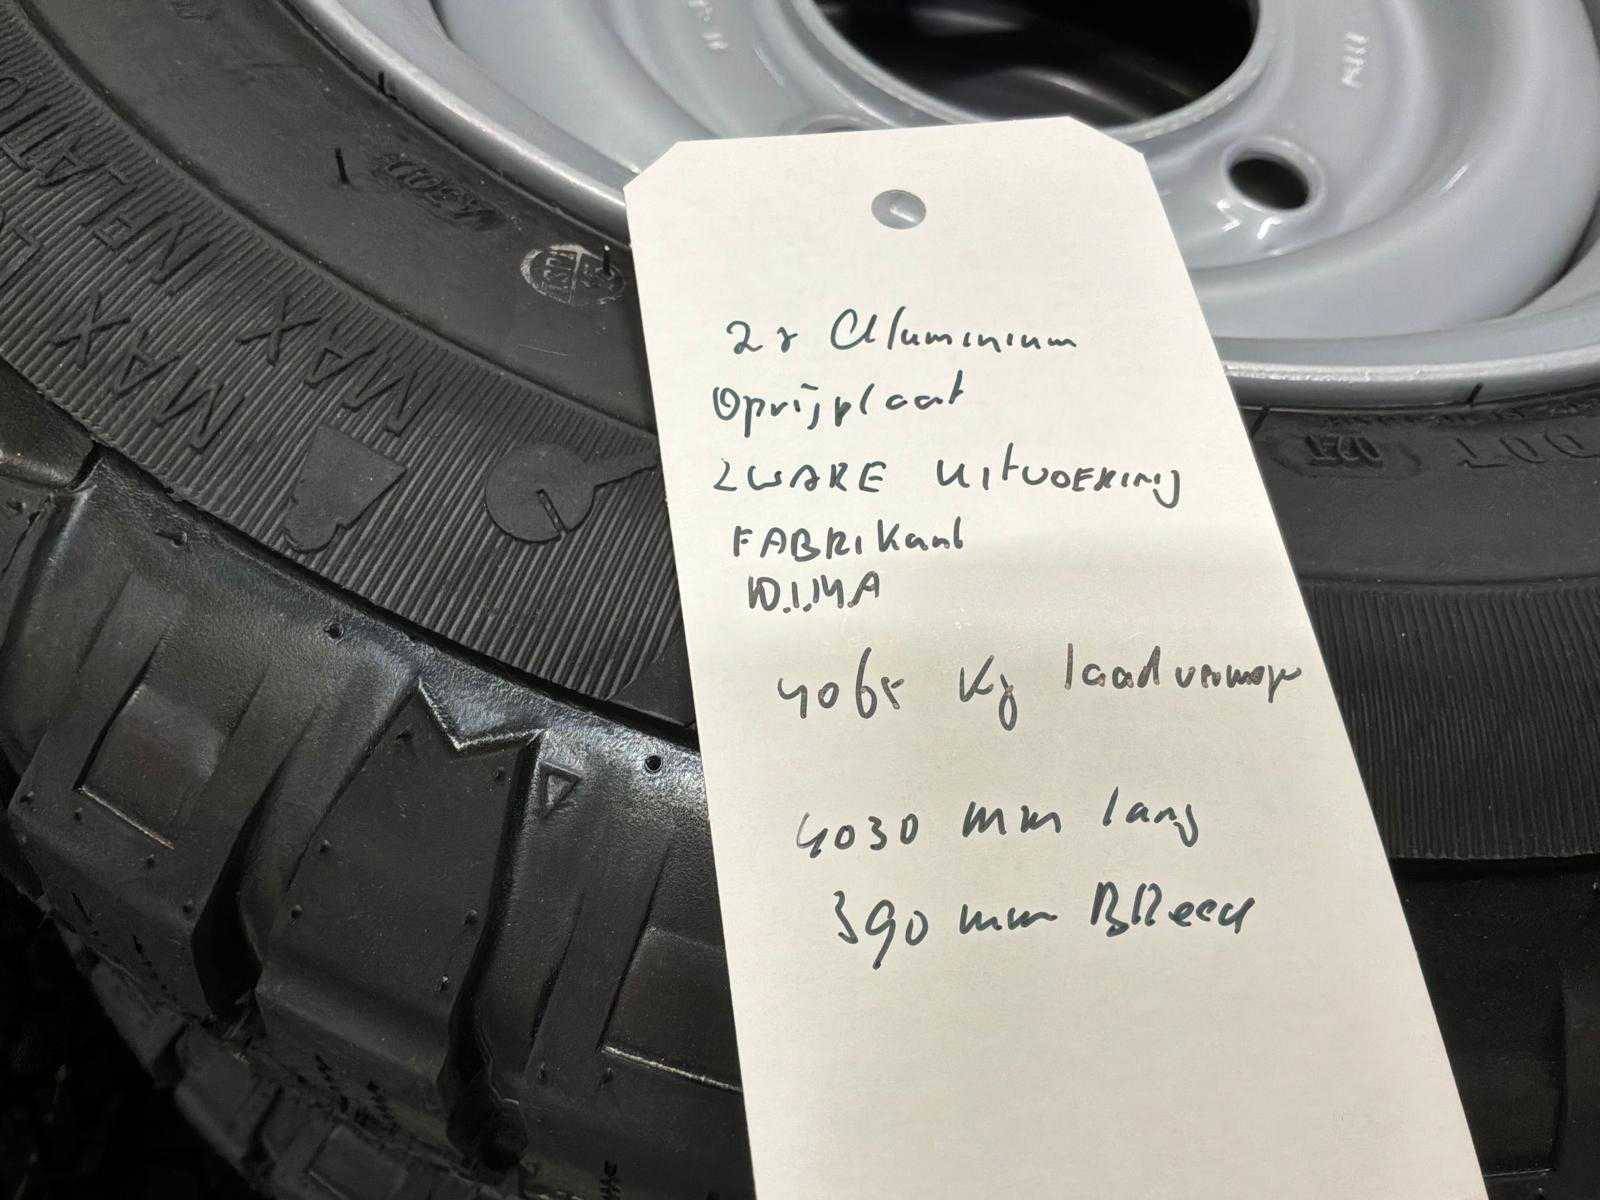 2x Aluminium
Oprijplaat
ZWARE UITVOERING
FABRIKANT
D.I.M.A
4065 Kg laadvermogen
4030 mm lang
390 mm BReed
MAX INFLATIO
MAX
DOT